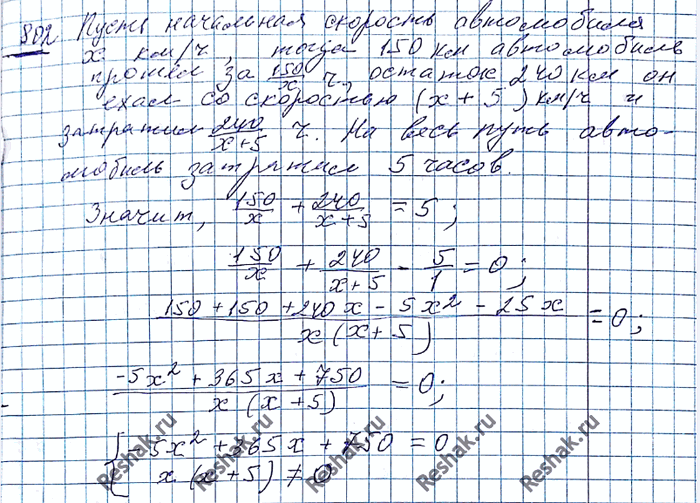 802 Пусть начальная скорость автомобиля
x км/ч, тогда 150 км автомобиль
прошёл за 150/x ч, остаток 240 км он
ехал со скоростью (x + 5) км/ч и
затратил 240/x+5 ч. На весь путь авто-
мобиль затратил 5 часов.
Значит, 150/x + 240/x+5 = 5;
150/x + 240/x+5 - 5/1 = 0;
150 + 150 + 240x - 5x² - 25x / x(x+5) = 0;
-5x² + 365x + 750 / x(x+5) = 0;
{ -5x² + 365x + 750 = 0
x(x+5) ≠ 0
Reshak.ru Reshak.ru Reshak.ru Reshak.ru